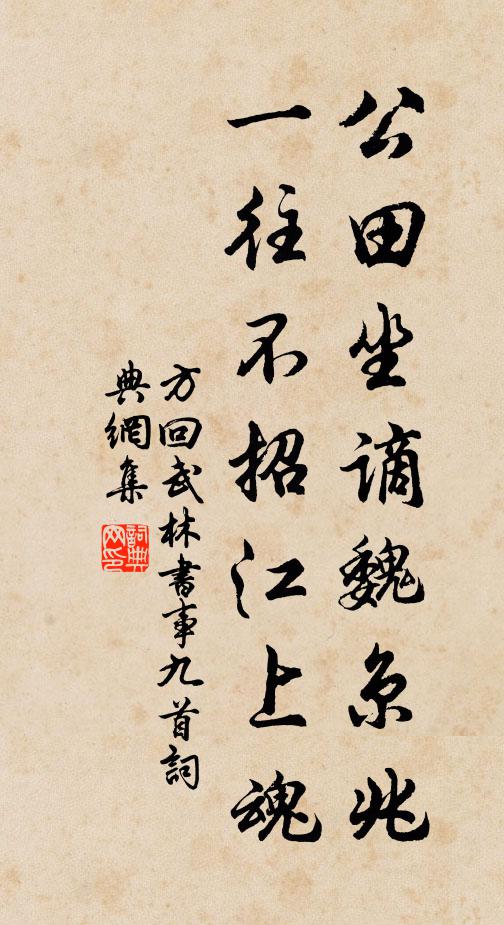 公田坐謫魏京兆
一往不招江上魂
方回武林書事九首詞
典網集
詞典
网印